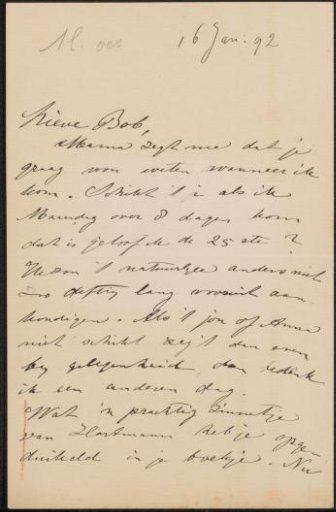 16 Jan. 92
Lieve Bob,
Mama zegt me dat je
graag wou weten wanneer ik
kom. Schikt 't je als ik
Maandag over 8 dagen kom
dat is geloof ik de 25ste?
Ik zou 't natuurlijk anders niet
zoo deftig lang vooruit aan-
kondigen. Als 't jou of Anna
niet schikt zeg 't dan even
bij gelegenheid, dan bedenk
ik een anderen dag.
Wat 'n prachtig zinnetje
van Hartmann heb je opge-
duikeld in je boekje. Nu